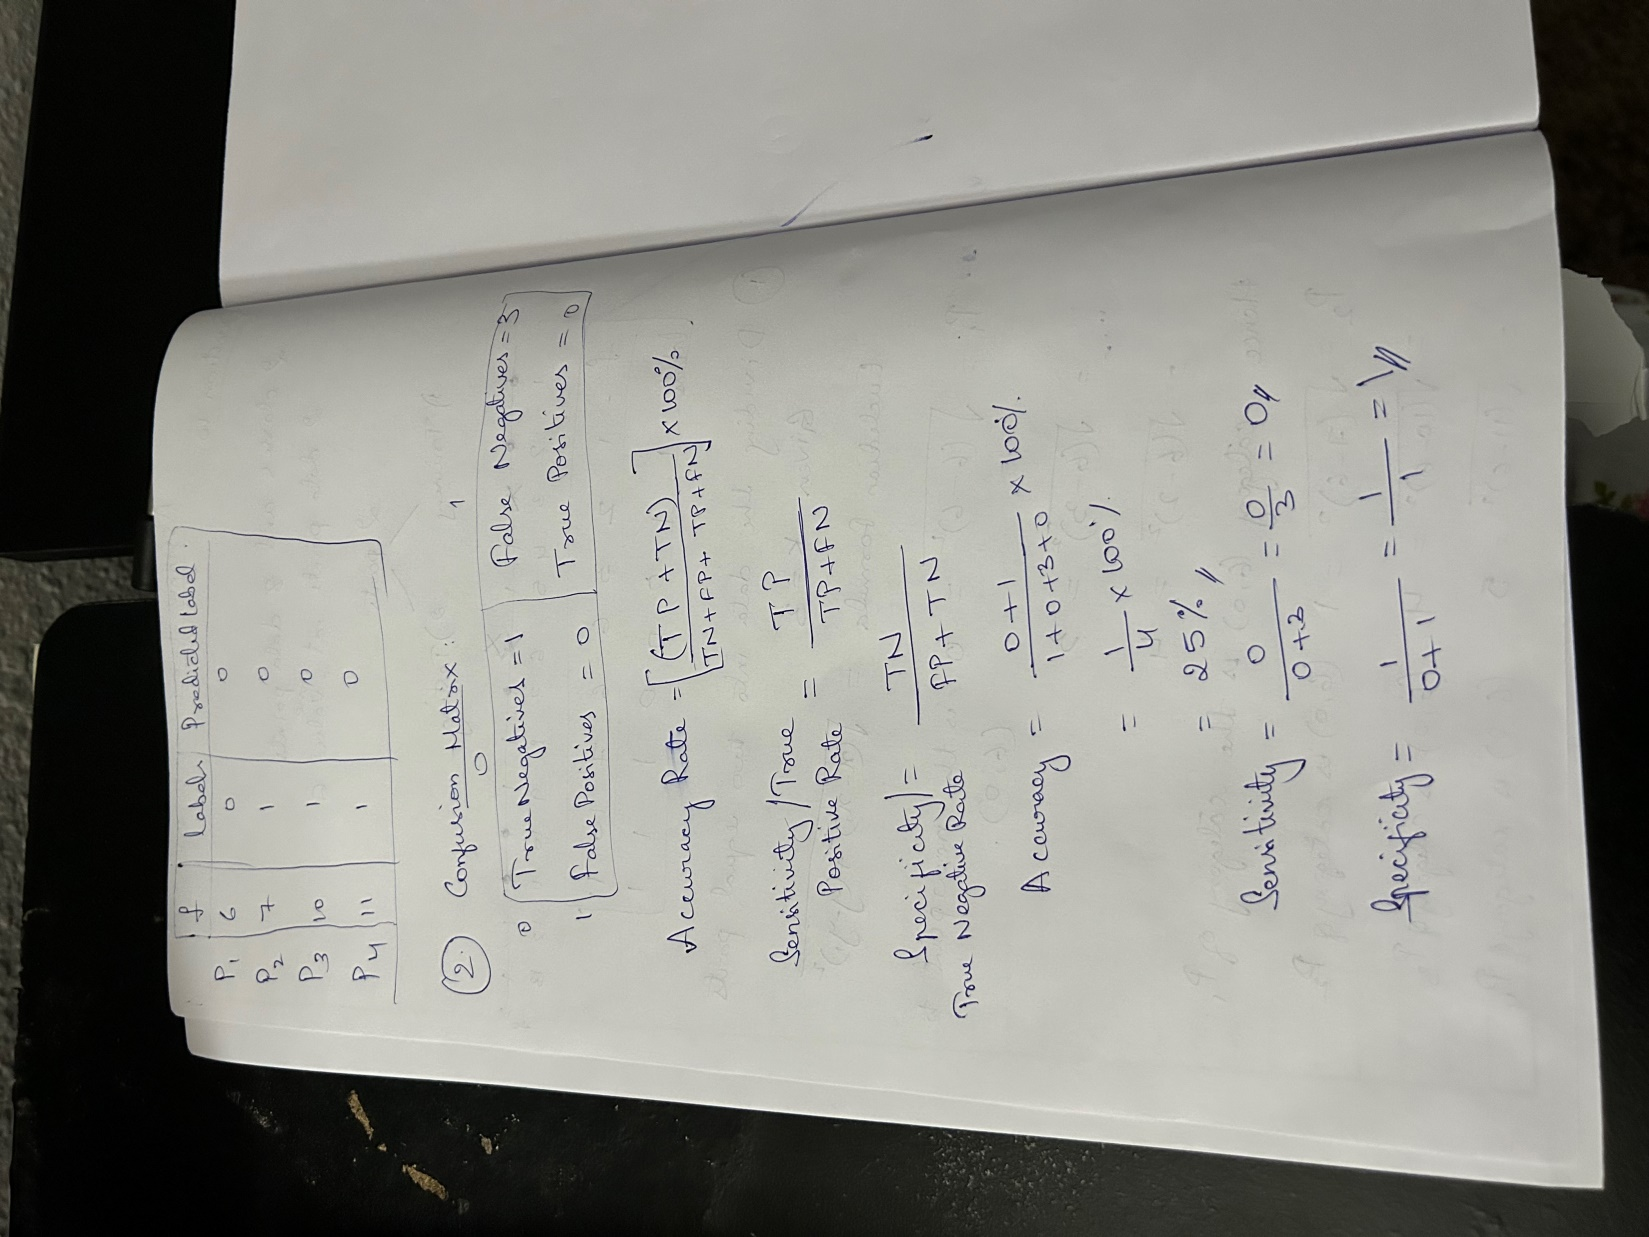 f Labels Predicted Label
P1 6 0 0
P2 7 1 0
P3 10 1 0
P4 11 1 0
2. Confusion Matrix :
0 1
0 True Negatives = 1 False Negatives = 3
1 False Positives = 0 True Positives = 0
Accuracy Rate = [(TP + TN) / TN + FP + TP + FN] × 100%
Sensitivity / True Positive Rate = TP / TP + FN
Specificity / True Negative Rate = TN / FP + TN
Accuracy = 0 + 1 / 1 + 0 + 3 + 0 × 100%
= 1 / 4 × 100%
= 25%
Sensitivity = 0 / 0 + 3 = 0 / 3 = 0
Specificity = 1 / 0 + 1 = 1 / 1 = 1